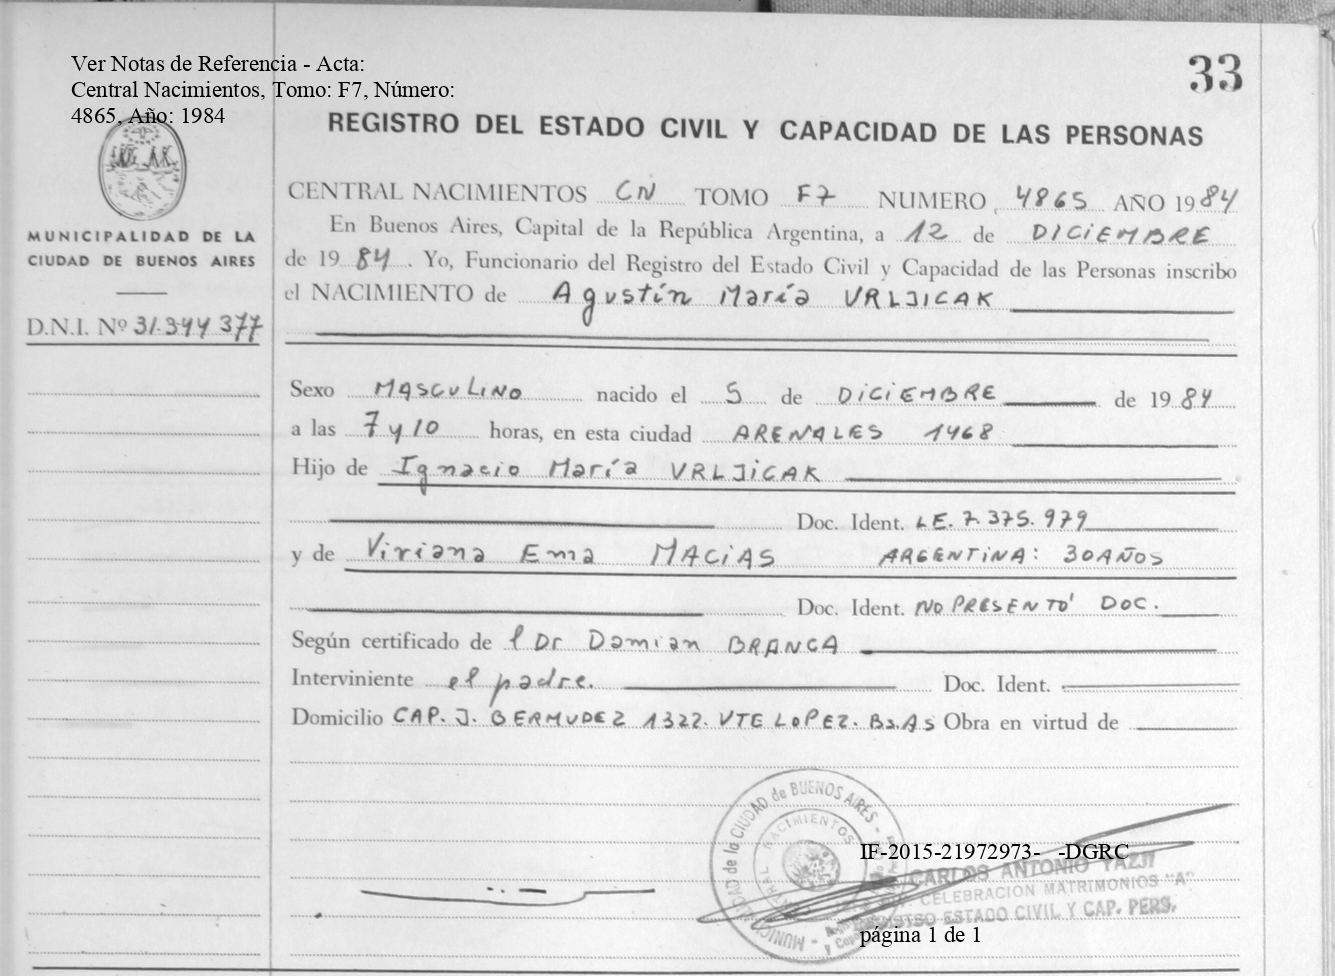 Ver Notas de Referencia - Acta:
Central Nacimientos, Tomo: F7, Número:
4865, Año: 1984
33
REGISTRO DEL ESTADO CIVIL Y CAPACIDAD DE LAS PERSONAS
MUNICIPALIDAD DE LA
CIUDAD DE BUENOS AIRES
D.N.I. Nº 31.344377
CENTRAL NACIMIENTOS CN TOMO F7 NUMERO 4865 AÑO 1984
En Buenos Aires, Capital de la República Argentina, a 12 de DICIEMBRE
de 1984. Yo, Funcionario del Registro del Estado Civil y Capacidad de las Personas inscribo
el NACIMIENTO de Agustín María VRLJICAK
Sexo MASCULINO nacido el 5 de DICIEMBRE de 1984
a las 7 y 10 horas, en esta ciudad ARENALES 1468
Hijo de Ignacio María VRLJICAK
Doc. Ident. LE. 7.375.979
y de Viviana Ema MACIAS ARGENTINA: 30 AÑOS
Doc. Ident. NO PRESENTÓ DOC.
Según certificado de l Dr Damian BRANCA
Interviniente el padre. Doc. Ident.
Domicilio CAP. J. BERMUDEZ 1322. VTE LOPEZ. Bs.As Obra en virtud de
MUNICIPALIDAD de la CIUDAD de BUENOS AIRES
CENTRAL NACIMIENTOS
IF-2015-21972973- -DGRC
CARLOS ANTONIO YAZJI
CELEBRACION MATRIMONIOS "A"
REGISTRO ESTADO CIVIL Y CAP. PERS.
página 1 de 1